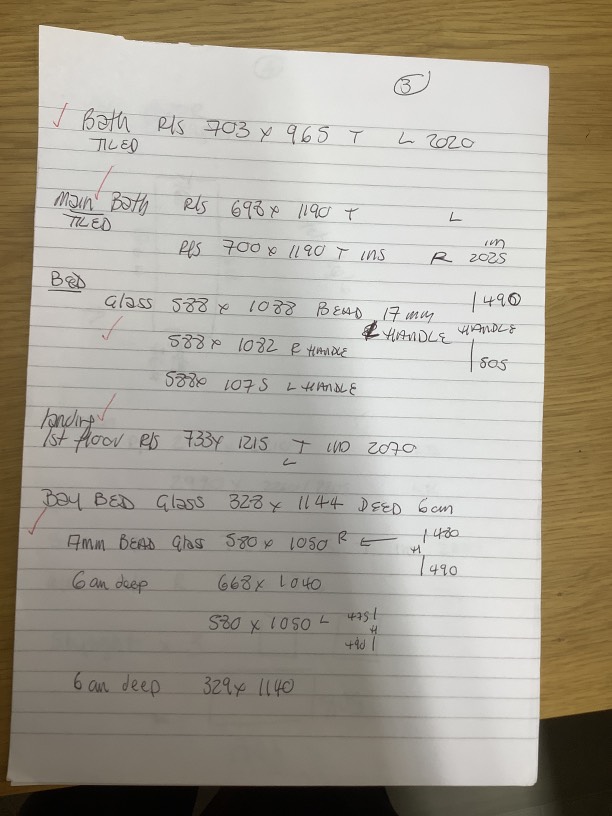 3
Bath R/s 703 x 965 T L 2020
TILED
Main Bath R/s 698 x 1190 T L
TILED
R/s 700 x 1190 T INS R 2025
BED
Glass 588 x 1088 BEAD 17 mm | 490
L HANDLE HANDLE
588 x 1082 R HANDLE | 505
588x 1075 L HANDLE
landing
1st floor R/s 733x 1215 T IND 2070
L
Bay BED Glass 328 x 1144 DEED 6cm
7mm BEAD Glass 580 x 1050 R ← | 480
H
| 490
6cm deep 668 x 1040
580 x 1050 L 475 |
H
490 |
6cm deep 329x 1140